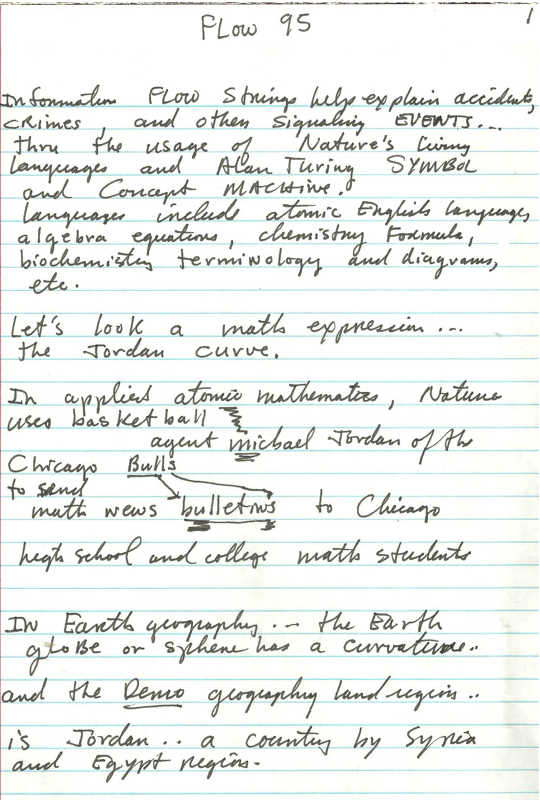 1
FLOW 95
Information FLOW Strings help explain accidents,
crimes, and other signaling EVENTS...
thru the usage of Nature's living
languages and Alan Turing SYMBOL
and Concept MACHINE.
languages include atomic English language,
algebra equations, chemistry Formula,
biochemistry terminology and diagrams,
etc.
Let's look a math expression...
the Jordan curve.
In applied atomic mathematics, Nature
uses basketball
agent michael Jordan of the
Chicago Bulls
to send
math news bulletins to Chicago
high school and college math students
In Earth geography... the Earth
gloBe or sphere has a curvature..
and the Demo geography land region..
is Jordan.. a country by Syria
and Egypt region.